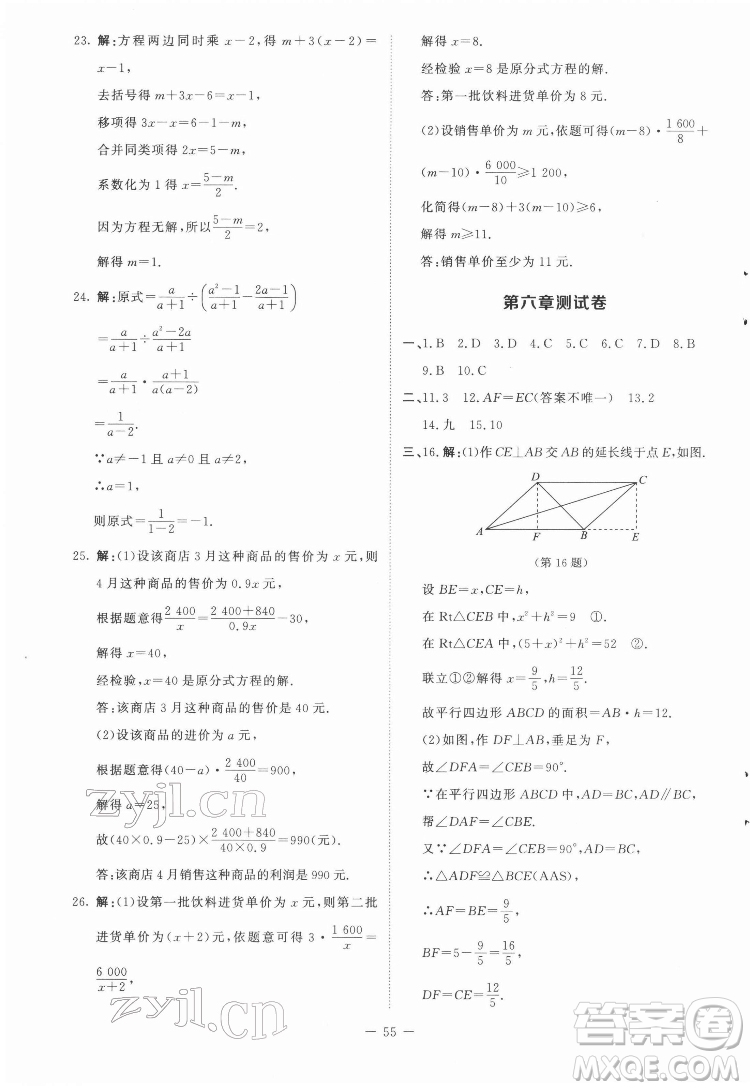 23. 解:方程两边同时乘 x－2，得 m＋3(x－2)＝
x－1，
去括号得 m＋3x－6＝x－1，
移项得 3x－x＝6－1－m，
合并同类项得 2x＝5－m，
系数化为 1 得 x＝(5－m)/2.
因为方程无解，所以(5－m)/2＝2，
解得 m＝1.
24. 解:原式＝a/(a＋1)÷((a²－1)/(a＋1)－(2a－1)/(a＋1))
＝a/(a＋1)÷(a²－2a)/(a＋1)
＝a/(a＋1)·(a＋1)/(a(a－2))
＝1/(a－2).
∵a≠－1 且 a≠0 且 a≠2，
∴a＝1，
则原式＝1/(1－2)＝－1.
25. 解:(1)设该商店 3 月这种商品的售价为 x 元，则
4 月这种商品的售价为 0.9x 元，
根据题意得 2 400/x＝(2 400＋840)/0.9x－30，
解得 x＝40，
经检验，x＝40 是原分式方程的解.
答:该商店 3 月这种商品的售价为 40 元.
(2)设该商品的进价为 a 元，
根据题意得(40－a)·2 400/40＝900，
解得 a＝25，
故(40×0.9－25)×(2 400＋840)/(40×0.9)＝990(元).
答:该商店 4 月销售这种商品的利润是 990 元.
26. 解:(1)设第一批饮料进货单价为 x 元，则第二批
进货单价为(x＋2)元，依题意可得 3·1 600/x＝
6 000/(x＋2)，
解得 x＝8.
经检验 x＝8 是原分式方程的解.
答:第一批饮料进货单价为 8 元.
(2)设销售单价为 m 元，依题可得(m－8)·1 600/8＋
(m－10)·6 000/10≥1 200，
化简得(m－8)＋3(m－10)≥6，
解得 m≥11.
答:销售单价至少为 11 元.
第六章测试卷
一、1. B 2. D 3. D 4. B 5. C 6. D 7. D 8. B
9. B 10. C
二、11. 3 12. AF＝EC(答案不唯一) 13. 2
14. 九 15. 10
三、16. 解:(1)作 CE⊥AB 交 AB 的延长线于点 E，如图.
D C
A F B E
(第 16 题)
设 BE＝x，CE＝h，
在 Rt△CEB 中，x²＋h²＝9 ①.
在 Rt△CEA 中，(5＋x)²＋h²＝52 ②.
联立①②解得 x＝9/5，h＝12/5.
故平行四边形 ABCD 的面积＝AB·h＝12.
(2)如图，作 DF⊥AB，垂足为 F，
故∠DFA＝∠CEB＝90°.
∵在平行四边形 ABCD 中，AD＝BC，AD∥BC，
帮∠DAF＝∠CBE.
又∵∠DFA＝∠CEB＝90°，
∴△ADF≌△BCE(AAS)，
∴AF＝BE＝9/5，
BF＝5－9/5＝16/5，
DF＝CE＝12/5.
— 55 —
zyjl.cn
zyjl.cn
答案卷
MXQE.COM